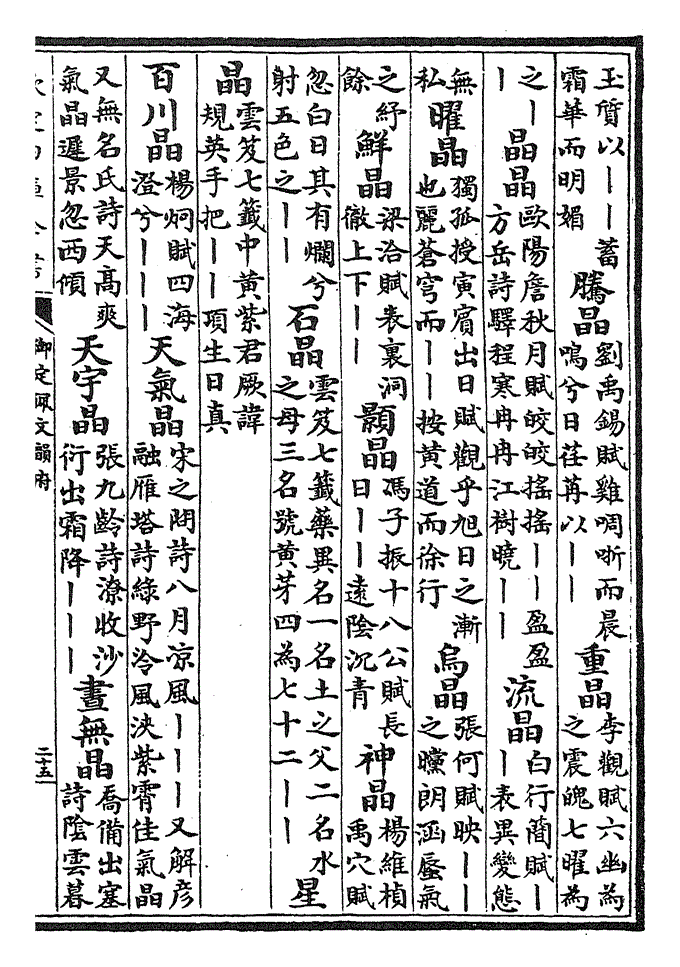 玉質以丨丨蓄霜華而明媚 騰晶 劉禹錫賦雞啁哳而晨鳴兮日荏苒以丨丨 重晶 李觀賦六幽為之震魄七曜為
之丨丨 晶晶 歐陽詹秋月賦皎皎搖搖丨丨盈盈方岳詩驛程寒冉冉江樹曉丨丨 流晶 白行簡賦丨丨表異變態
無私 曜晶 獨孤授寅賓出日賦觀乎旭日之漸也麗蒼穹而丨丨按黃道而徐行 烏晶 張何賦映丨丨之曭朗涵蜃氣
之紓餘 鮮晶 梁洽賦表裏洞徹上下丨丨 顥晶 馮子振十八公賦長日丨丨遠陰沉青 神晶 楊維楨禹穴賦
忽白日其有爛兮射五色之丨丨 石晶 雲笈七籤藥異名一名土之父二名水之母三名號黃芽四為七十二丨丨 星
晶 雲笈七籤中黃紫君厥諱規英手把丨丨項生日真
百川晶 楊炯賦四海澄兮丨丨丨 天氣晶 宋之問詩八月涼風丨丨丨又解彥融雁塔詩綠野冷風浹紫霄佳氣晶
又無名氏詩天高爽氣晶遲景忽西傾 天宇晶 張九齡詩潦收沙衍出霜降丨丨丨 晝無晶 喬備出塞詩陰雲暮
御定佩文韻府
二十五